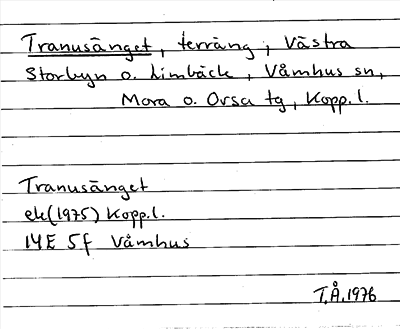 Tranusänget, terräng, i Västra
Storbyn o. Limbäck, Våmhus sn,
Mora o. Orsa tg, Kopp. l.
Tranusänget
ek (1975) Kopp. l.
14E 5f Våmhus
T.Å. 1976